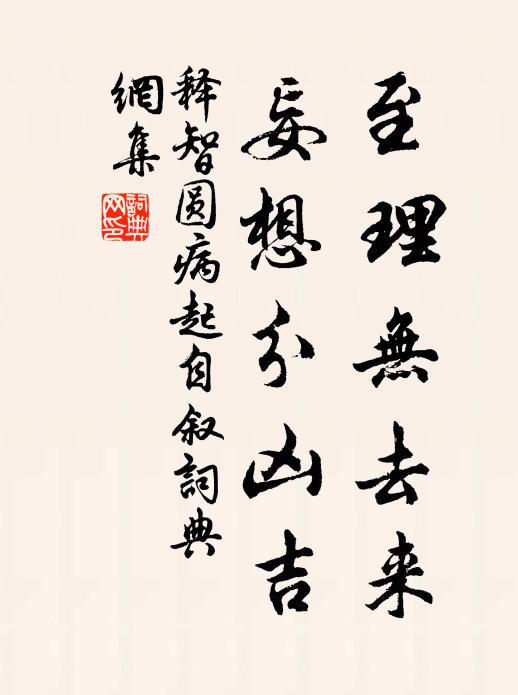 至理無去来
妄想分凶吉
释智圆病起自叙詞典
網集
詞典
网印